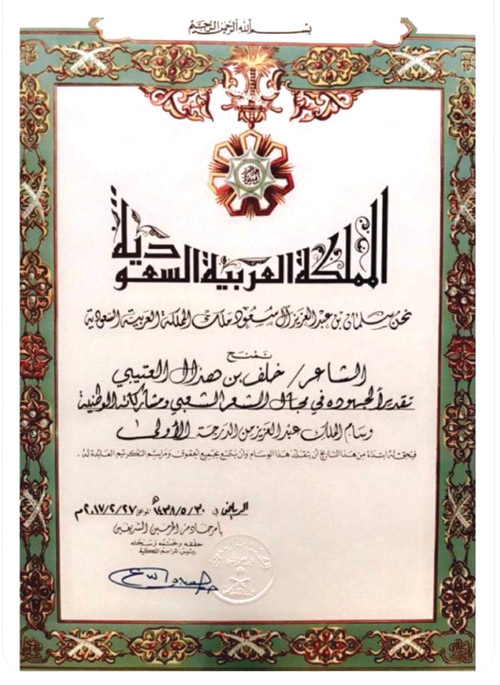 بسم الله الرحمن الرحيم
المملكة العربية السعودية
نحن سلمان بن عبدالعزيز آل سعود ملك المملكة العربية السعودية
نمنح
الشاعر/ خلف بن هذال العتيبي
تقديراً لجهوده في مجال الشعر الشعبي ومشاركاته الوطنية
وسام الملك عبدالعزيز من الدرجة الأولى
فيحق له ابتداءً من هذا التاريخ أن يتقلد هذا الوسام وأن يتمتع بجميع الحقوق ومراسيم التكريم العائدة له.
الرياض في ١٤٣٨/٥/٣٠هـ الموافق ٢٠١٧/٢/٢٧م
بأمر خادم الحرمين الشريفين
حققه وختمه وسجله
رئيس المراسم الملكية